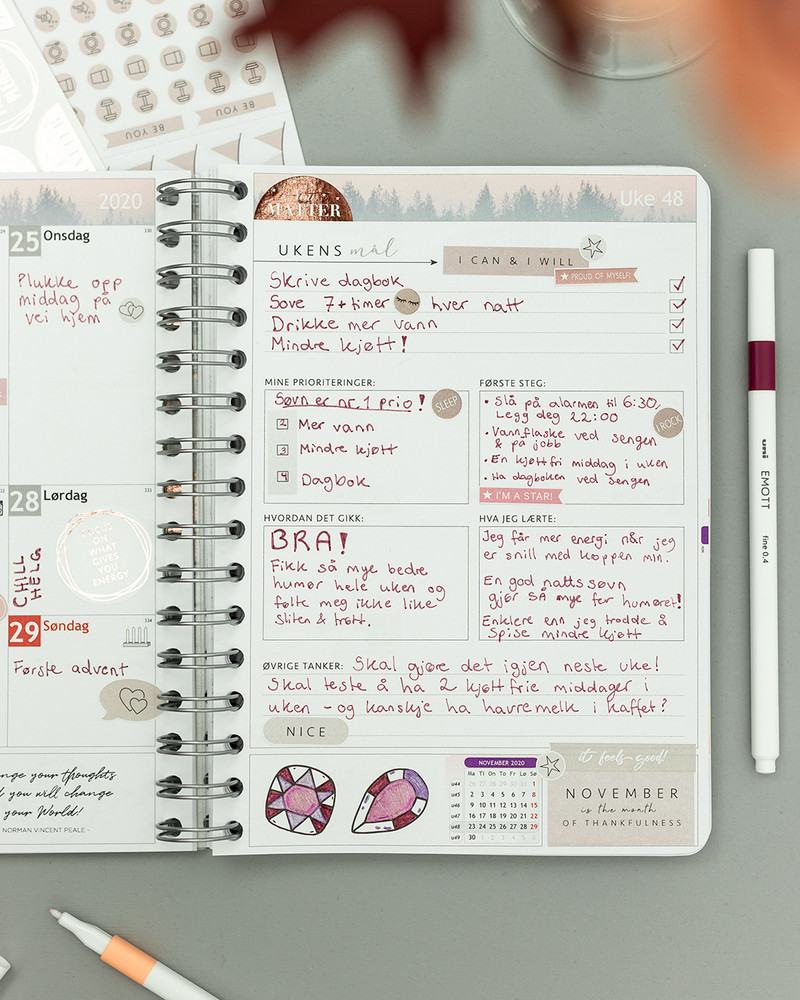 BE YOU
BE YOU
2020
25 Onsdag
330
Plukke opp
middag på
vei hjem
28 Lørdag
333
CHILL
HELG
FOCUS
ON
WHAT
GIVES
YOU
ENERGY
29 Søndag
334
Første advent
nge your thoughts
d you will change
your World!
NORMAN VINCENT PEALE -
MATTER
Uke 48
UKENS mål
I CAN & I WILL
PROUD OF MYSELF!
Skrive dagbok
Sove 7+ timer hver natt
Drikke mer vann
Mindre kjøtt!
MINE PRIORITERINGER:
Søvn er nr. 1 prio!
SLEEP
2 Mer vann
3 Mindre kjøtt
4 Dagbok
FØRSTE STEG:
• Slå på alarmen til 6:30,
Legg deg 22:00
I ROCK
• Vannflaske ved sengen
& på jobb
• En kjøttfri middag i uken
• Ha dagboken ved sengen
I'M A STAR!
HVORDAN DET GIKK:
BRA!
Fikk så mye bedre
humør hele uken og
følte meg ikke like
sliten & trøtt.
HVA JEG LÆRTE:
Jeg får mer energi når jeg
er snill med kroppen min.
En god natts søvn
gjør SÅ mye for humøret!
Enklere enn jeg trodde å
spise mindre kjøtt
ØVRIGE TANKER: Skal gjøre det igjen neste uke!
Skal teste å ha 2 kjøttfrie middager i
uken - og kanskje ha havremelk i kaffet?
NICE
NOVEMBER 2020
Ma Ti On To Fr Lø Sø
u44 26 27 28 29 30 31 1
u45 2 3 4 5 6 7 8
u46 9 10 11 12 13 14 15
u47 16 17 18 19 20 21 22
u48 23 24 25 26 27 28 29
u49 30 1 2 3 4 5 6
it feels good!
NOVEMBER
is the month
OF THANKFULNESS
uni EMOTT fine 0.4